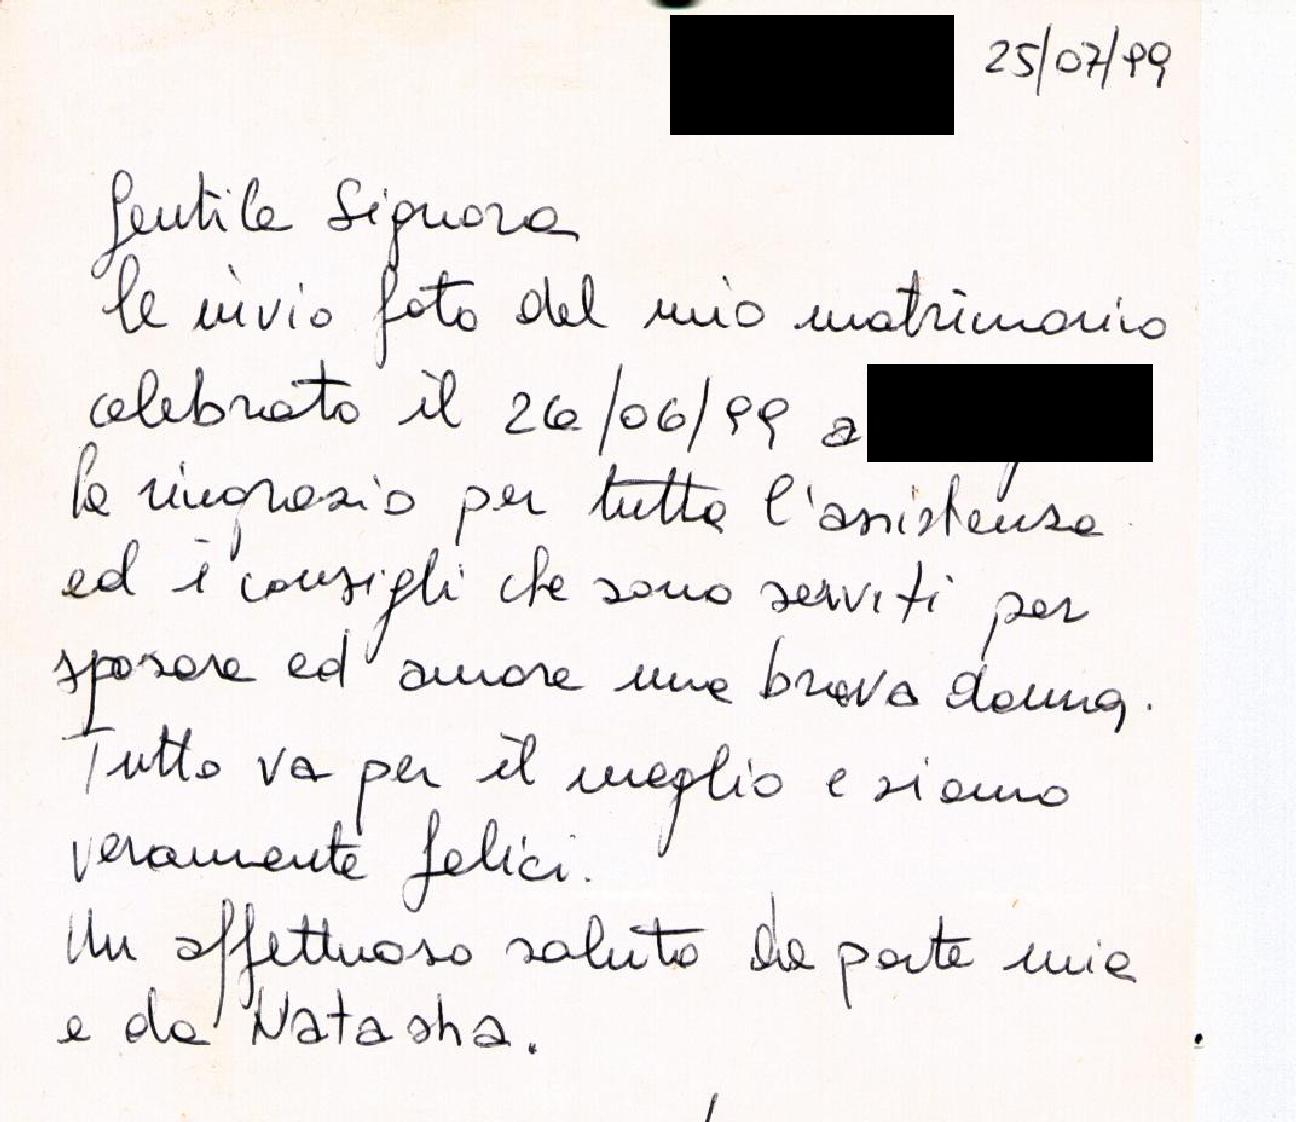 25/07/99
Gentile Signora
le invio foto del mio matrimonio
celebrato il 26/06/99 a
la ringrazio per tutta l'assistenza
ed i consigli che sono serviti per
sposare ed amare una brava donna.
Tutto va per il meglio e siamo
veramente felici.
Un affettuoso saluto da parte mia
e da Natasha.